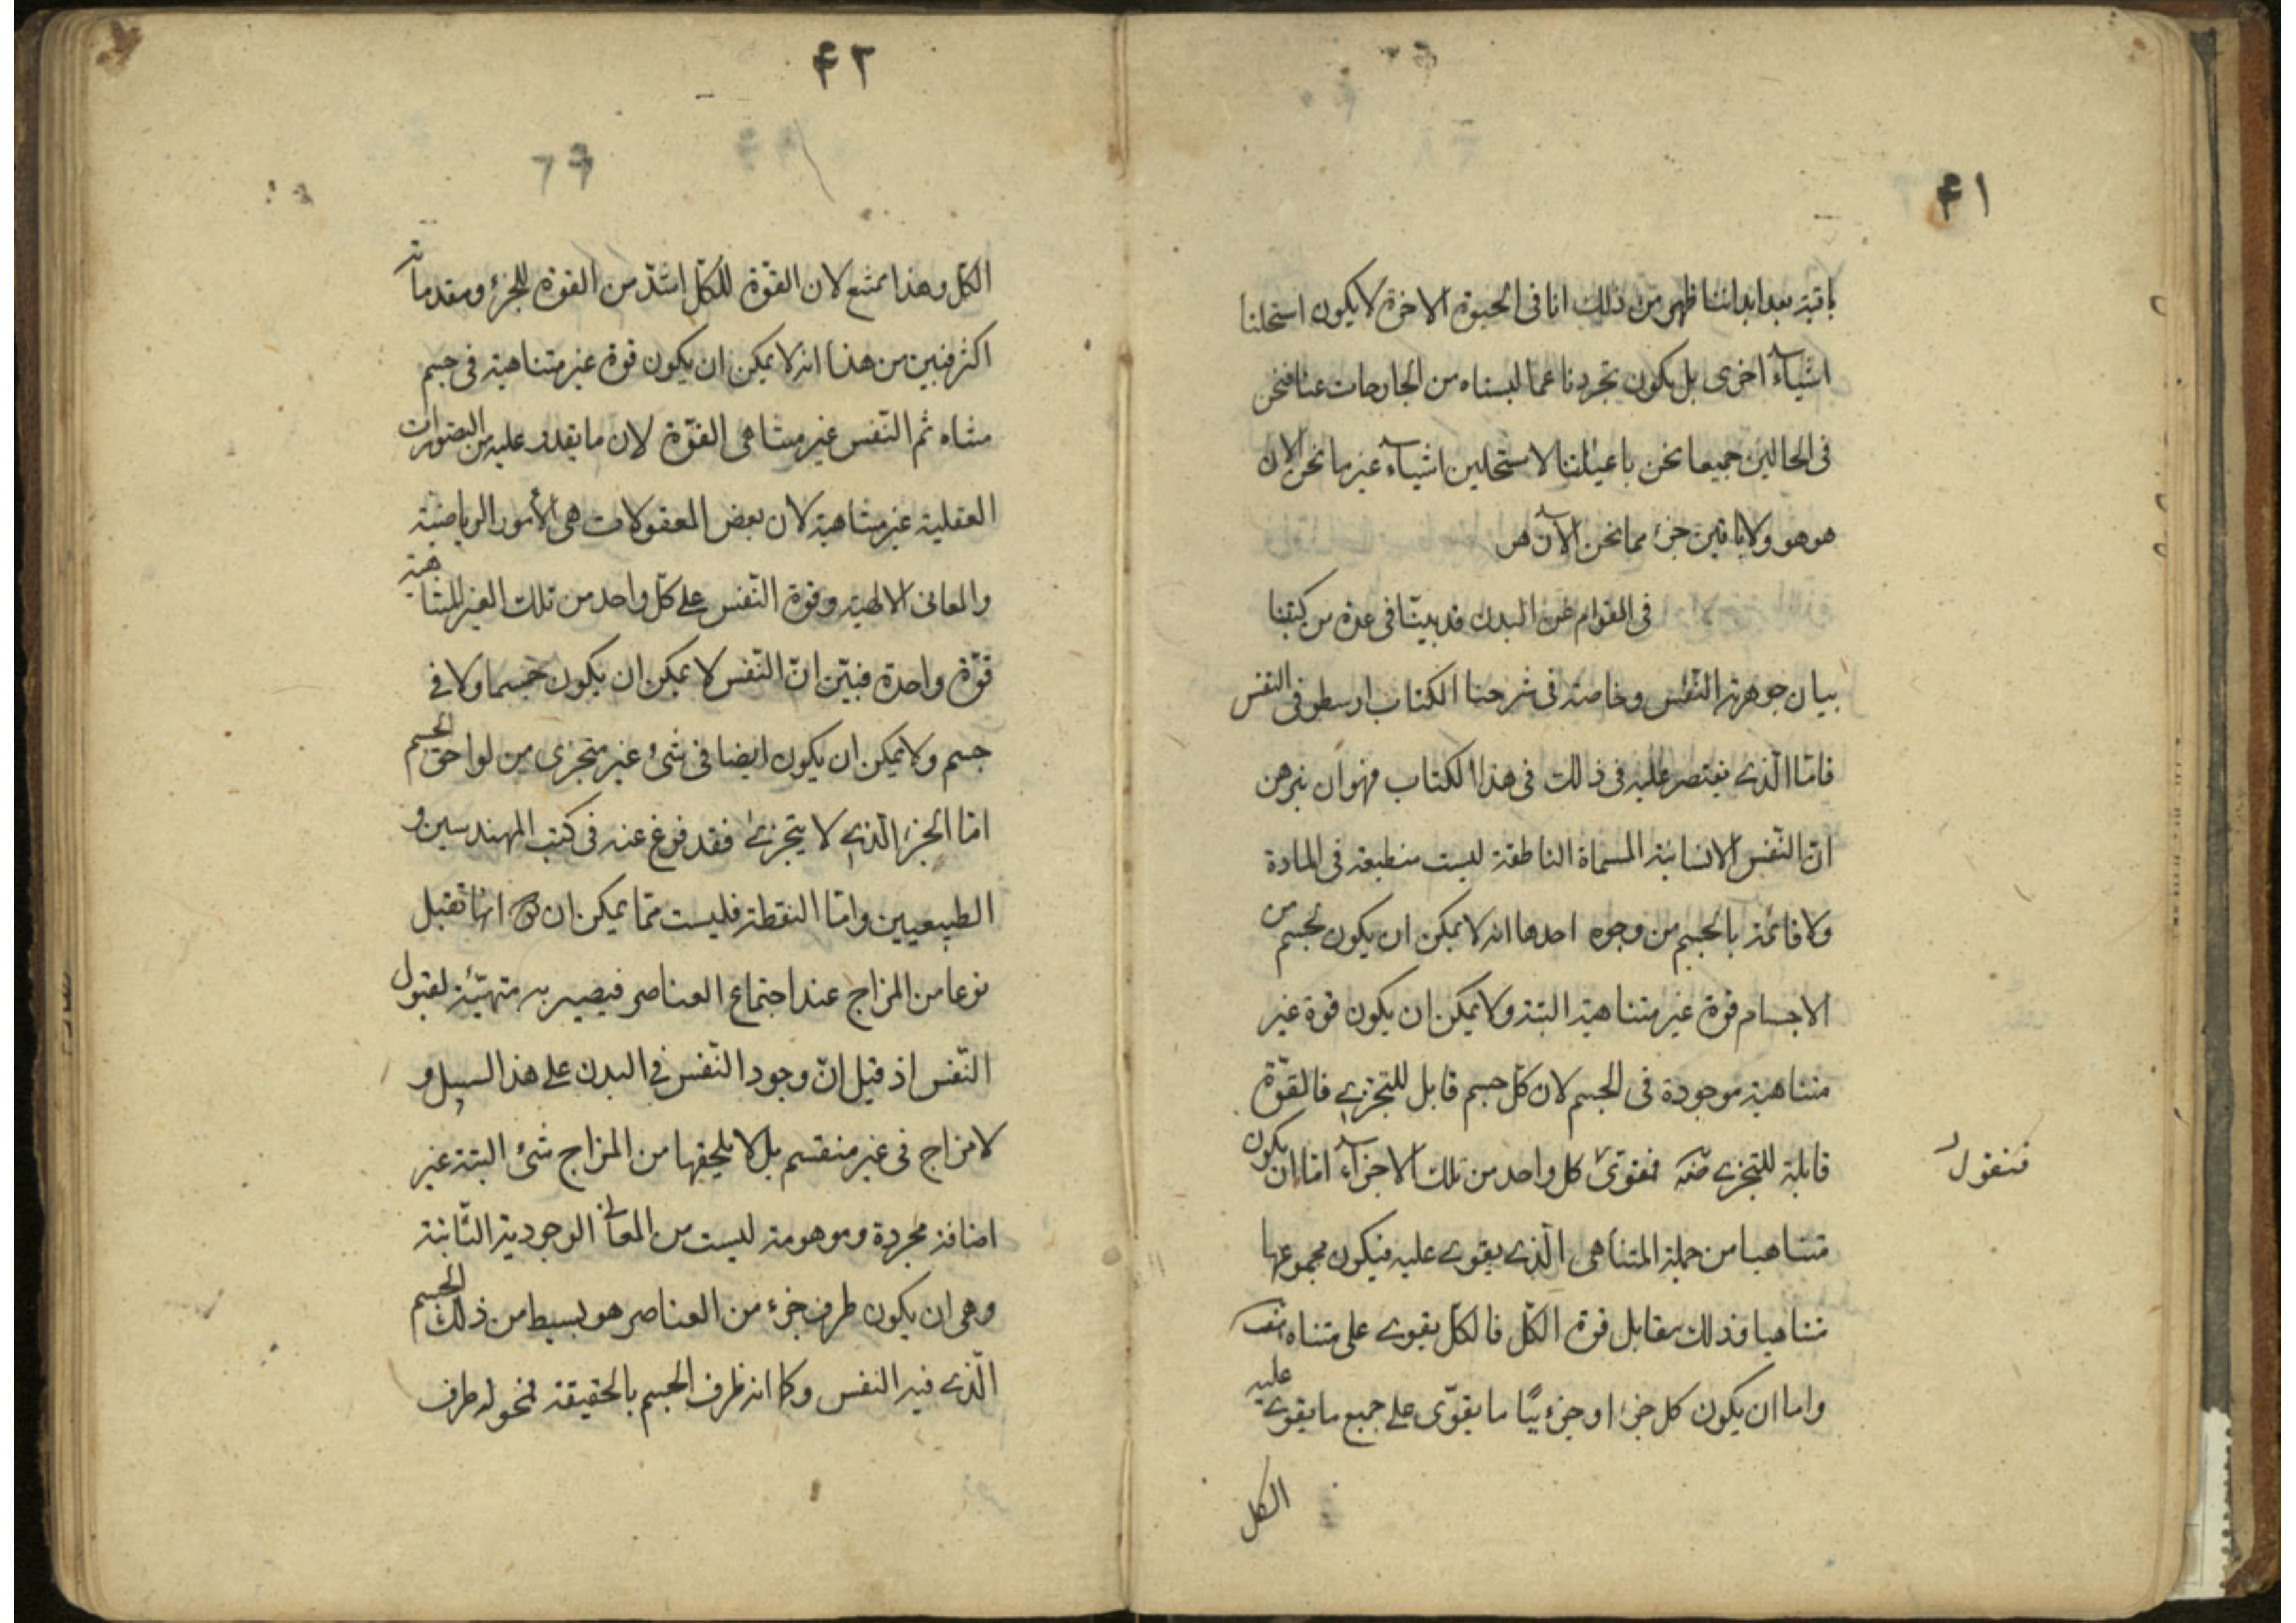 ۴۱
باقية بعد ابداننا فظهر من ذلك انا فى الحيوة الاخرة لا يكون استحلنا
اشياء اخرى بل يكون تجردنا عما لبسناه من الخارجات عنا فنحن
فى الحالين جميعا نحن باعياننا لا مستحلين اشياء غير ما نحن الان
هو هو ولا باقين جزء مما نحن الآن هو
فى القوام عن البدن قد بينا فى عدة من كتبنا
بيان جوهرية النفس وخاصة فى شرحنا الكتاب ارسطو فى النفس
فامّا الّذى نقتصر عليه فى ذالك فى هذا الكتاب فهو ان نبرهن
انّ النّفس الانسانية المسماة الناطقة ليست منطبعة فى المادة
ولا قائمة بالجسم من وجوه احدها انه لا يمكن ان يكون لجسم من
الاجسام قوة غير متناهية البتة ولا يمكن ان يكون قوة غير
متناهية موجودة فى الجسم لان كل جسم قابل للتجزى فالقوّة
قابلة للتجزى فقوى كل واحد من تلك الاجزاء امّا ان يكون
فنقول
متناهيا من جملة المتناهى الّذى يقوى عليه فيكون مجموعها
متناهيا وذلك مقابل قوة الكل فالكل يقوى على متناه هف
واما ان يكون كل جزء او جزء يبّا ما يقوّى على جميع ما يقوى عليه
الكل
۴۲
الكل وهذا يمتنع لان القوّة للكلّ اشدّ من القوة للجزء ومقدماته
اكثر فتبين من هذا انه لا يمكن ان يكون قوة غير متناهية فى جسم
متناه ثم النّفس غير متناهى القوّة لان ما يقدر عليه من التصورات
العقلية غير متناهية لان بعض المعقولات هى الأمور الرياضية
والمعانى الالهية وقوة النّفس على كلّ واحد من تلك الغير المتناهية
قوّة واحدة فبيّن انّ النّفس لا يمكن ان يكون جسما ولا فى
جسم ولا يمكن ان يكون ايضا فى شىء غير متجزى من لواحق الجسم
امّا الجزء الّذى لا يتجزى فقد فرغ عنه فى كتب المهندسين و
الطبيعيين وامّا النقطة فليست ممّا يمكن ان انّها تقبل
نوعا من المزاج عند اجتماع العناصر فيصير به متهيّئة لقبول
النّفس اذ قيل انّ وجود النّفس فى البدن على هذا السبيل و
لا مزاج فى غير منقسم بل لا يلحقها من المزاج شىء البتة غير
اضافة مجردة وموهومة ليست من المعانى الوجودية الثّابتة
وهى ان يكون طرف جزء من العناصر هو بسيط من ذلك الجسم
الّذى فيه النفس وكما انه ظرف الجسم بالحقيقة فنحو له طرف